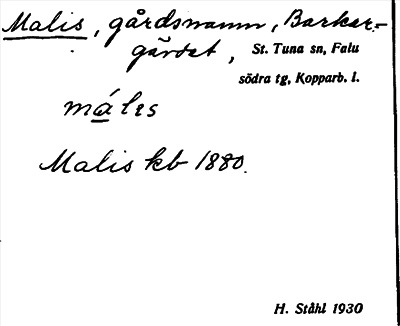 Malis, gårdsnamn, Barkar-
gärdet, St. Tuna sn, Falu
södra tg, Kopparb. l.
máles
Malis kb 1880.
H. Ståhl 1930